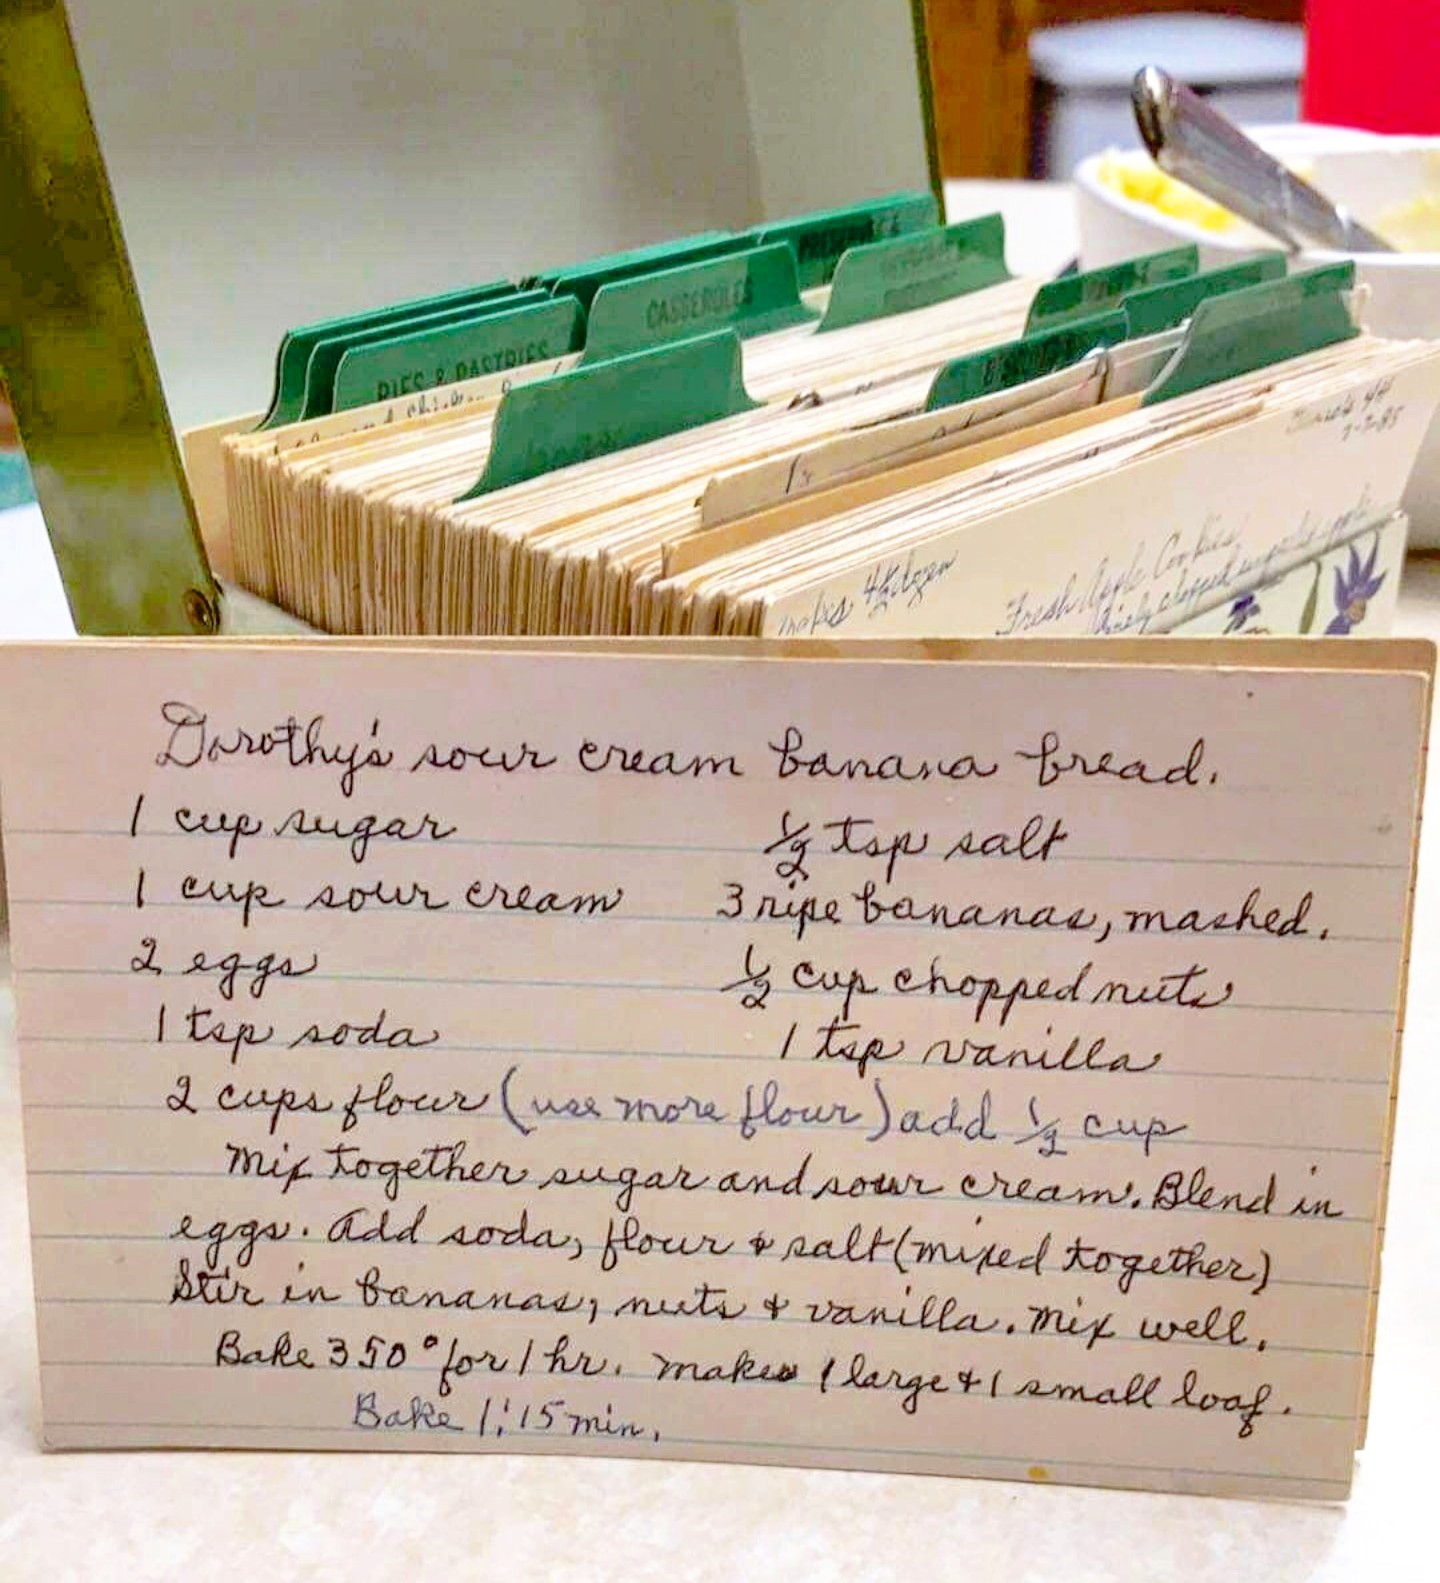 PIES & PASTRIES
CASSEROLES
makes 4½ dozen
Fresh Apple Cookies
finely chopped
7-7-85
Dorothy's sour cream banana bread.
1 cup sugar
½ tsp salt
1 cup sour cream
3 ripe bananas, mashed.
2 eggs
½ cup chopped nuts
1 tsp soda
1 tsp vanilla
2 cups flour (use more flour) add ½ cup
Mix together sugar and sour cream. Blend in
eggs. Add soda, flour & salt (mixed together)
Stir in bananas, nuts & vanilla. Mix well.
Bake 350° for 1 hr. Makes 1 large & 1 small loaf.
Bake 1:15 min.